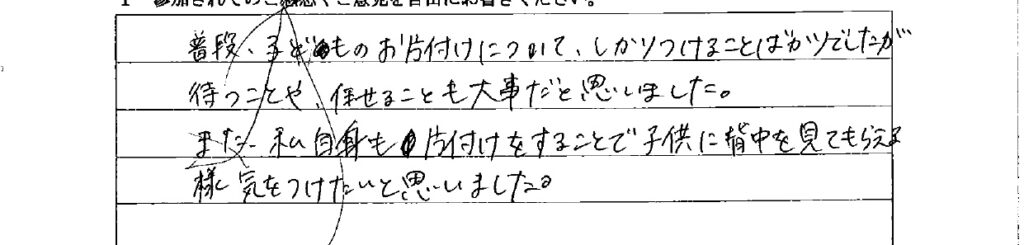 1 参加されてのご感想やご意見を自由にお書きください。
普段、子どものお片付けについて、しかりつけることばかりでしたが
待つことや、任せることも大事だと思いました。
また、私自身も片付けをすることで子供に背中を見てもらえる
様気をつけたいと思いました。